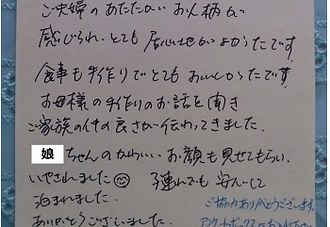 ご夫婦のあたたかいお人柄が
感じられ、とても居心地がよかったです
食事も手作りでとてもおいしかったです
お母様の手作りのお話を聞き
ご家族の仲の良さが伝わってきました。
娘ちゃんのかわいいお顔も見せてもらい
いやされました☺ 子連れでも安心して
泊まれました。
ありがとうございました。
ご協力ありがとうございます。
アンケートボックスにお入れ下さい